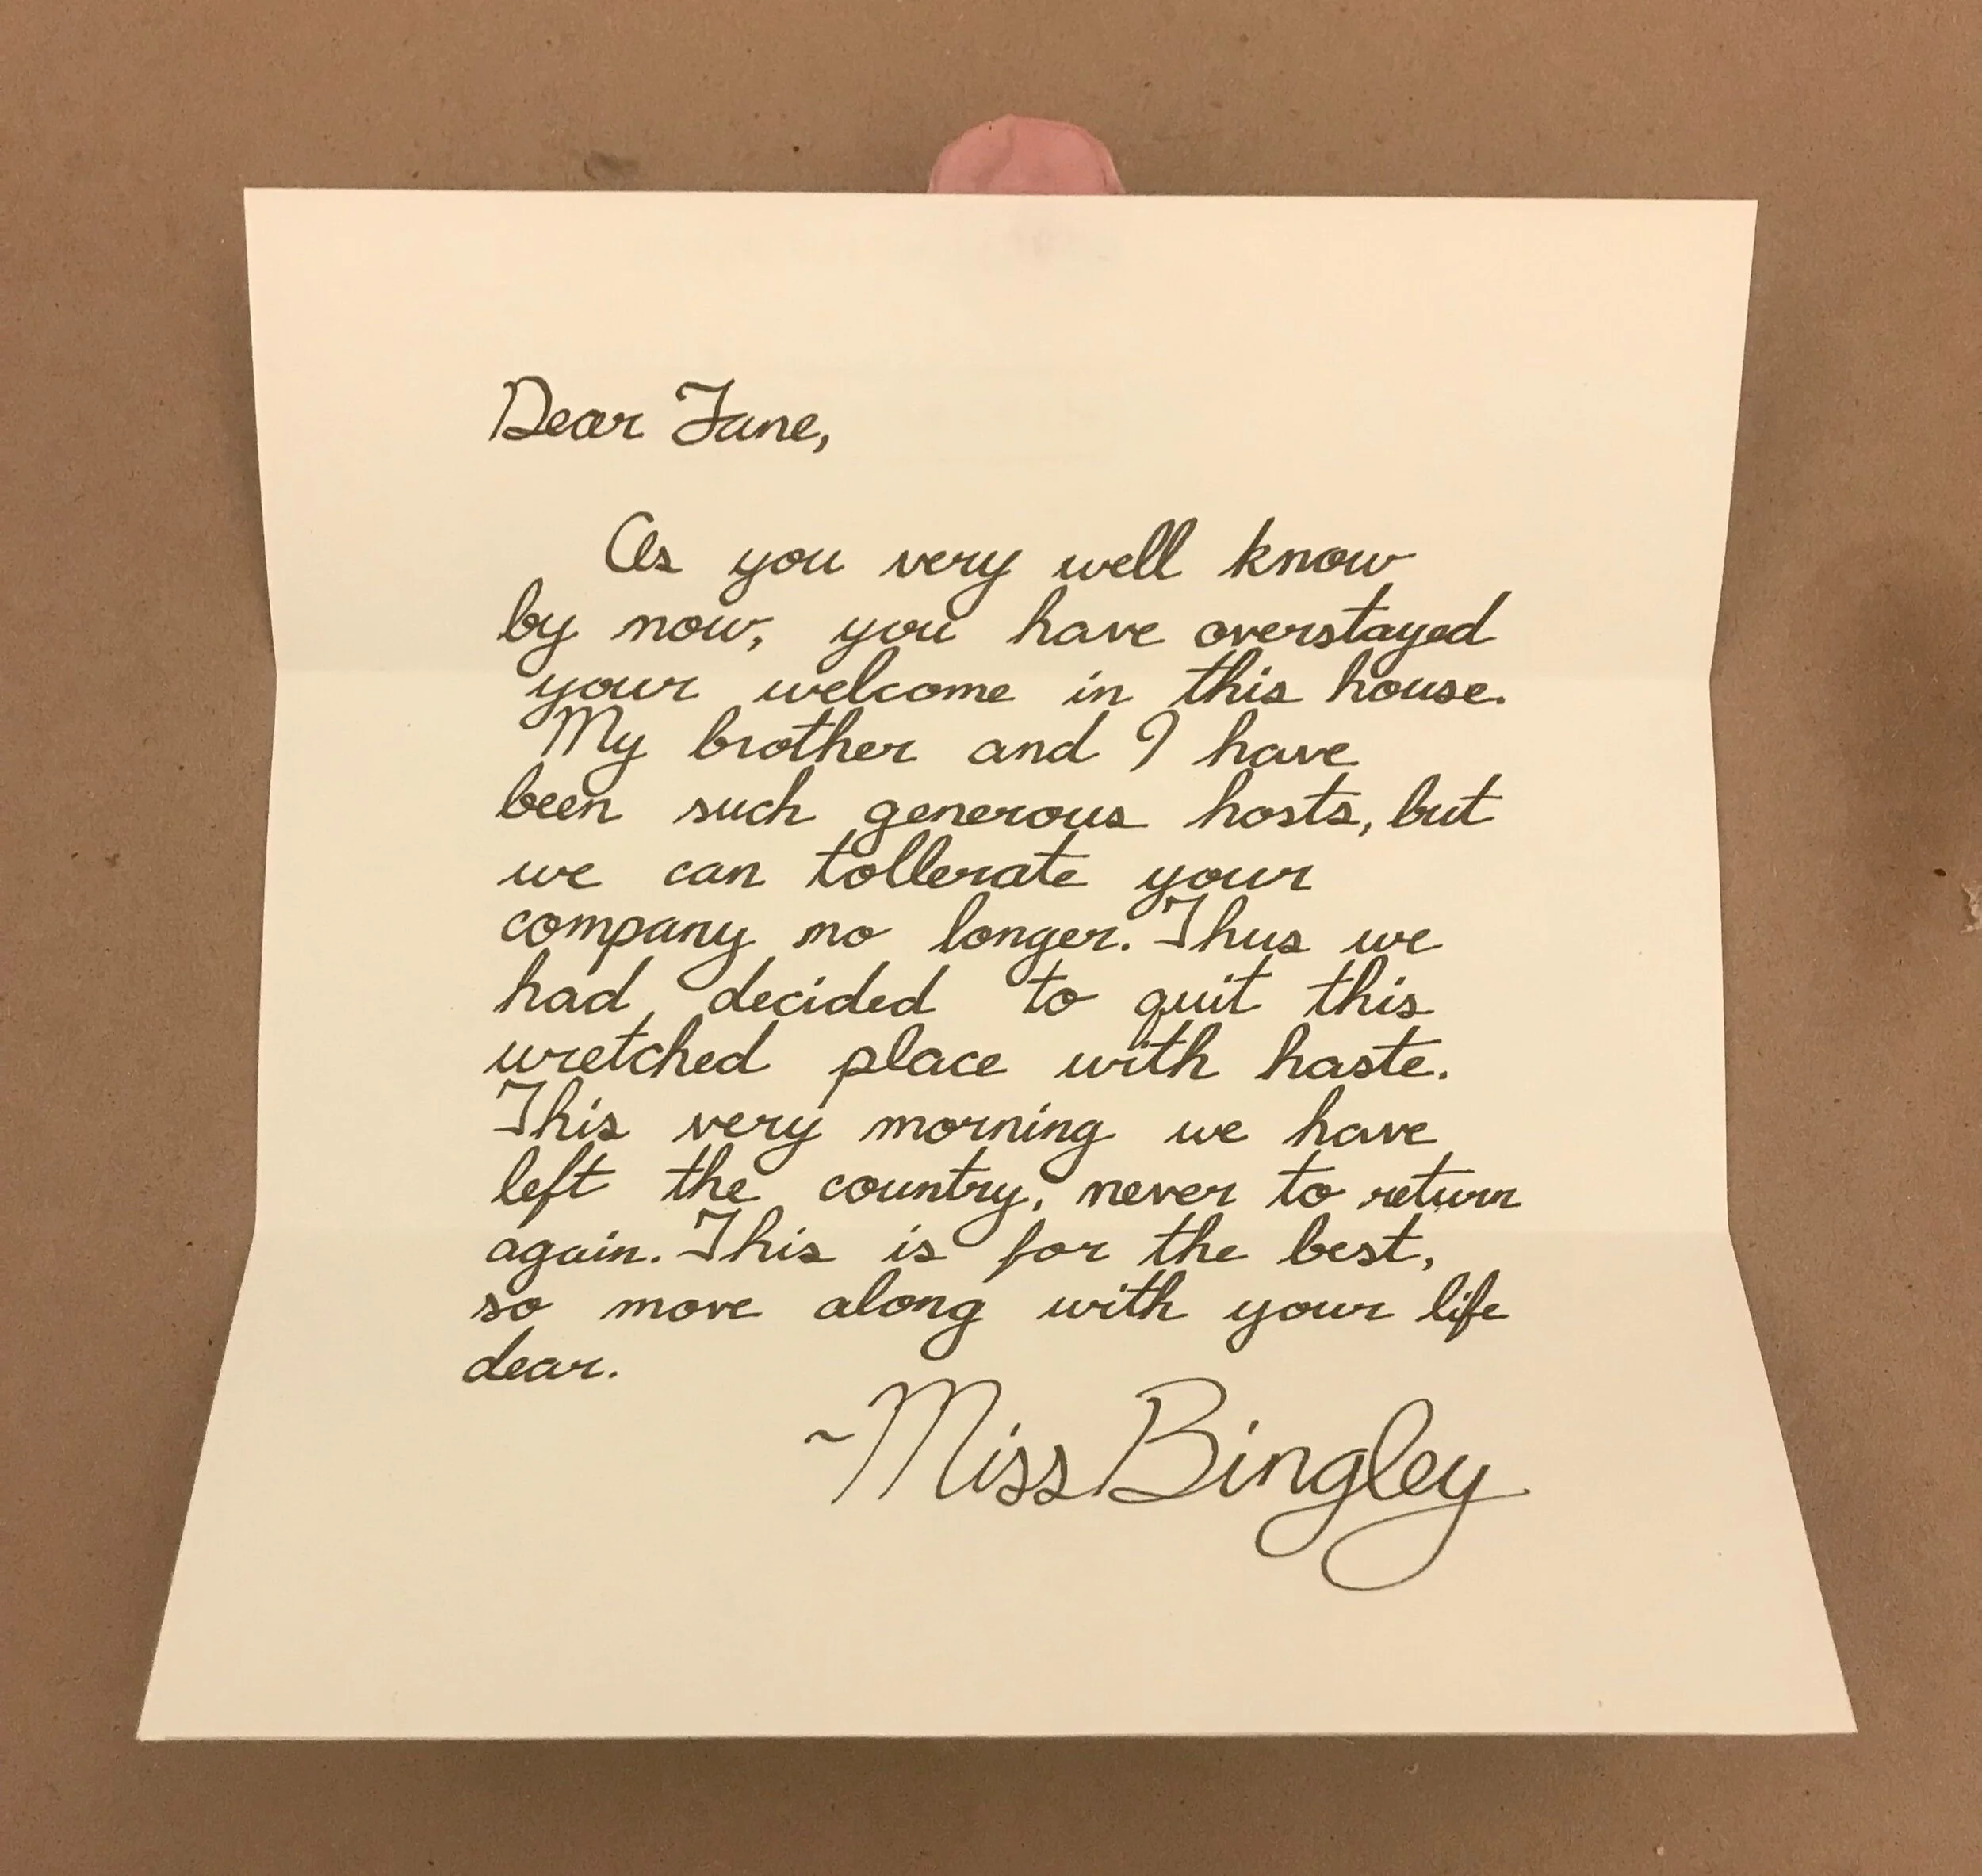 Dear Jane,
As you very well know
by now, you have overstayed
your welcome in this house.
My brother and I have
been such generous hosts, but
we can tollerate your
company no longer. Thus we
had decided to quit this
wretched place with haste.
This very morning we have
left the country, never to return
again. This is for the best,
so move along with your life
dear.
~Miss Bingley